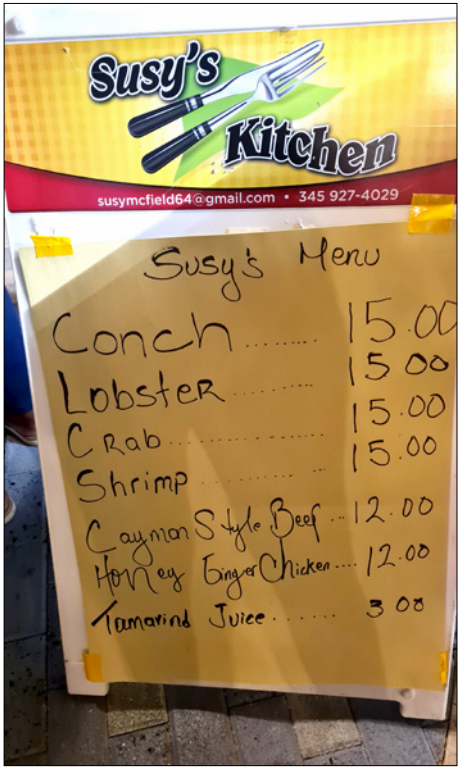 Susy's
Kitchen
susymcfield64@gmail.com • 345 927-4029
Susy's Menu
Conch ........ 15.00
Lobster .......... 15 00
Crab .................. 15.00
Shrimp .............. 15.00
Cayman Style Beef ... 12.00
Honey Ginger Chicken .... 12.00
Tamarind Juice ....... 3 00